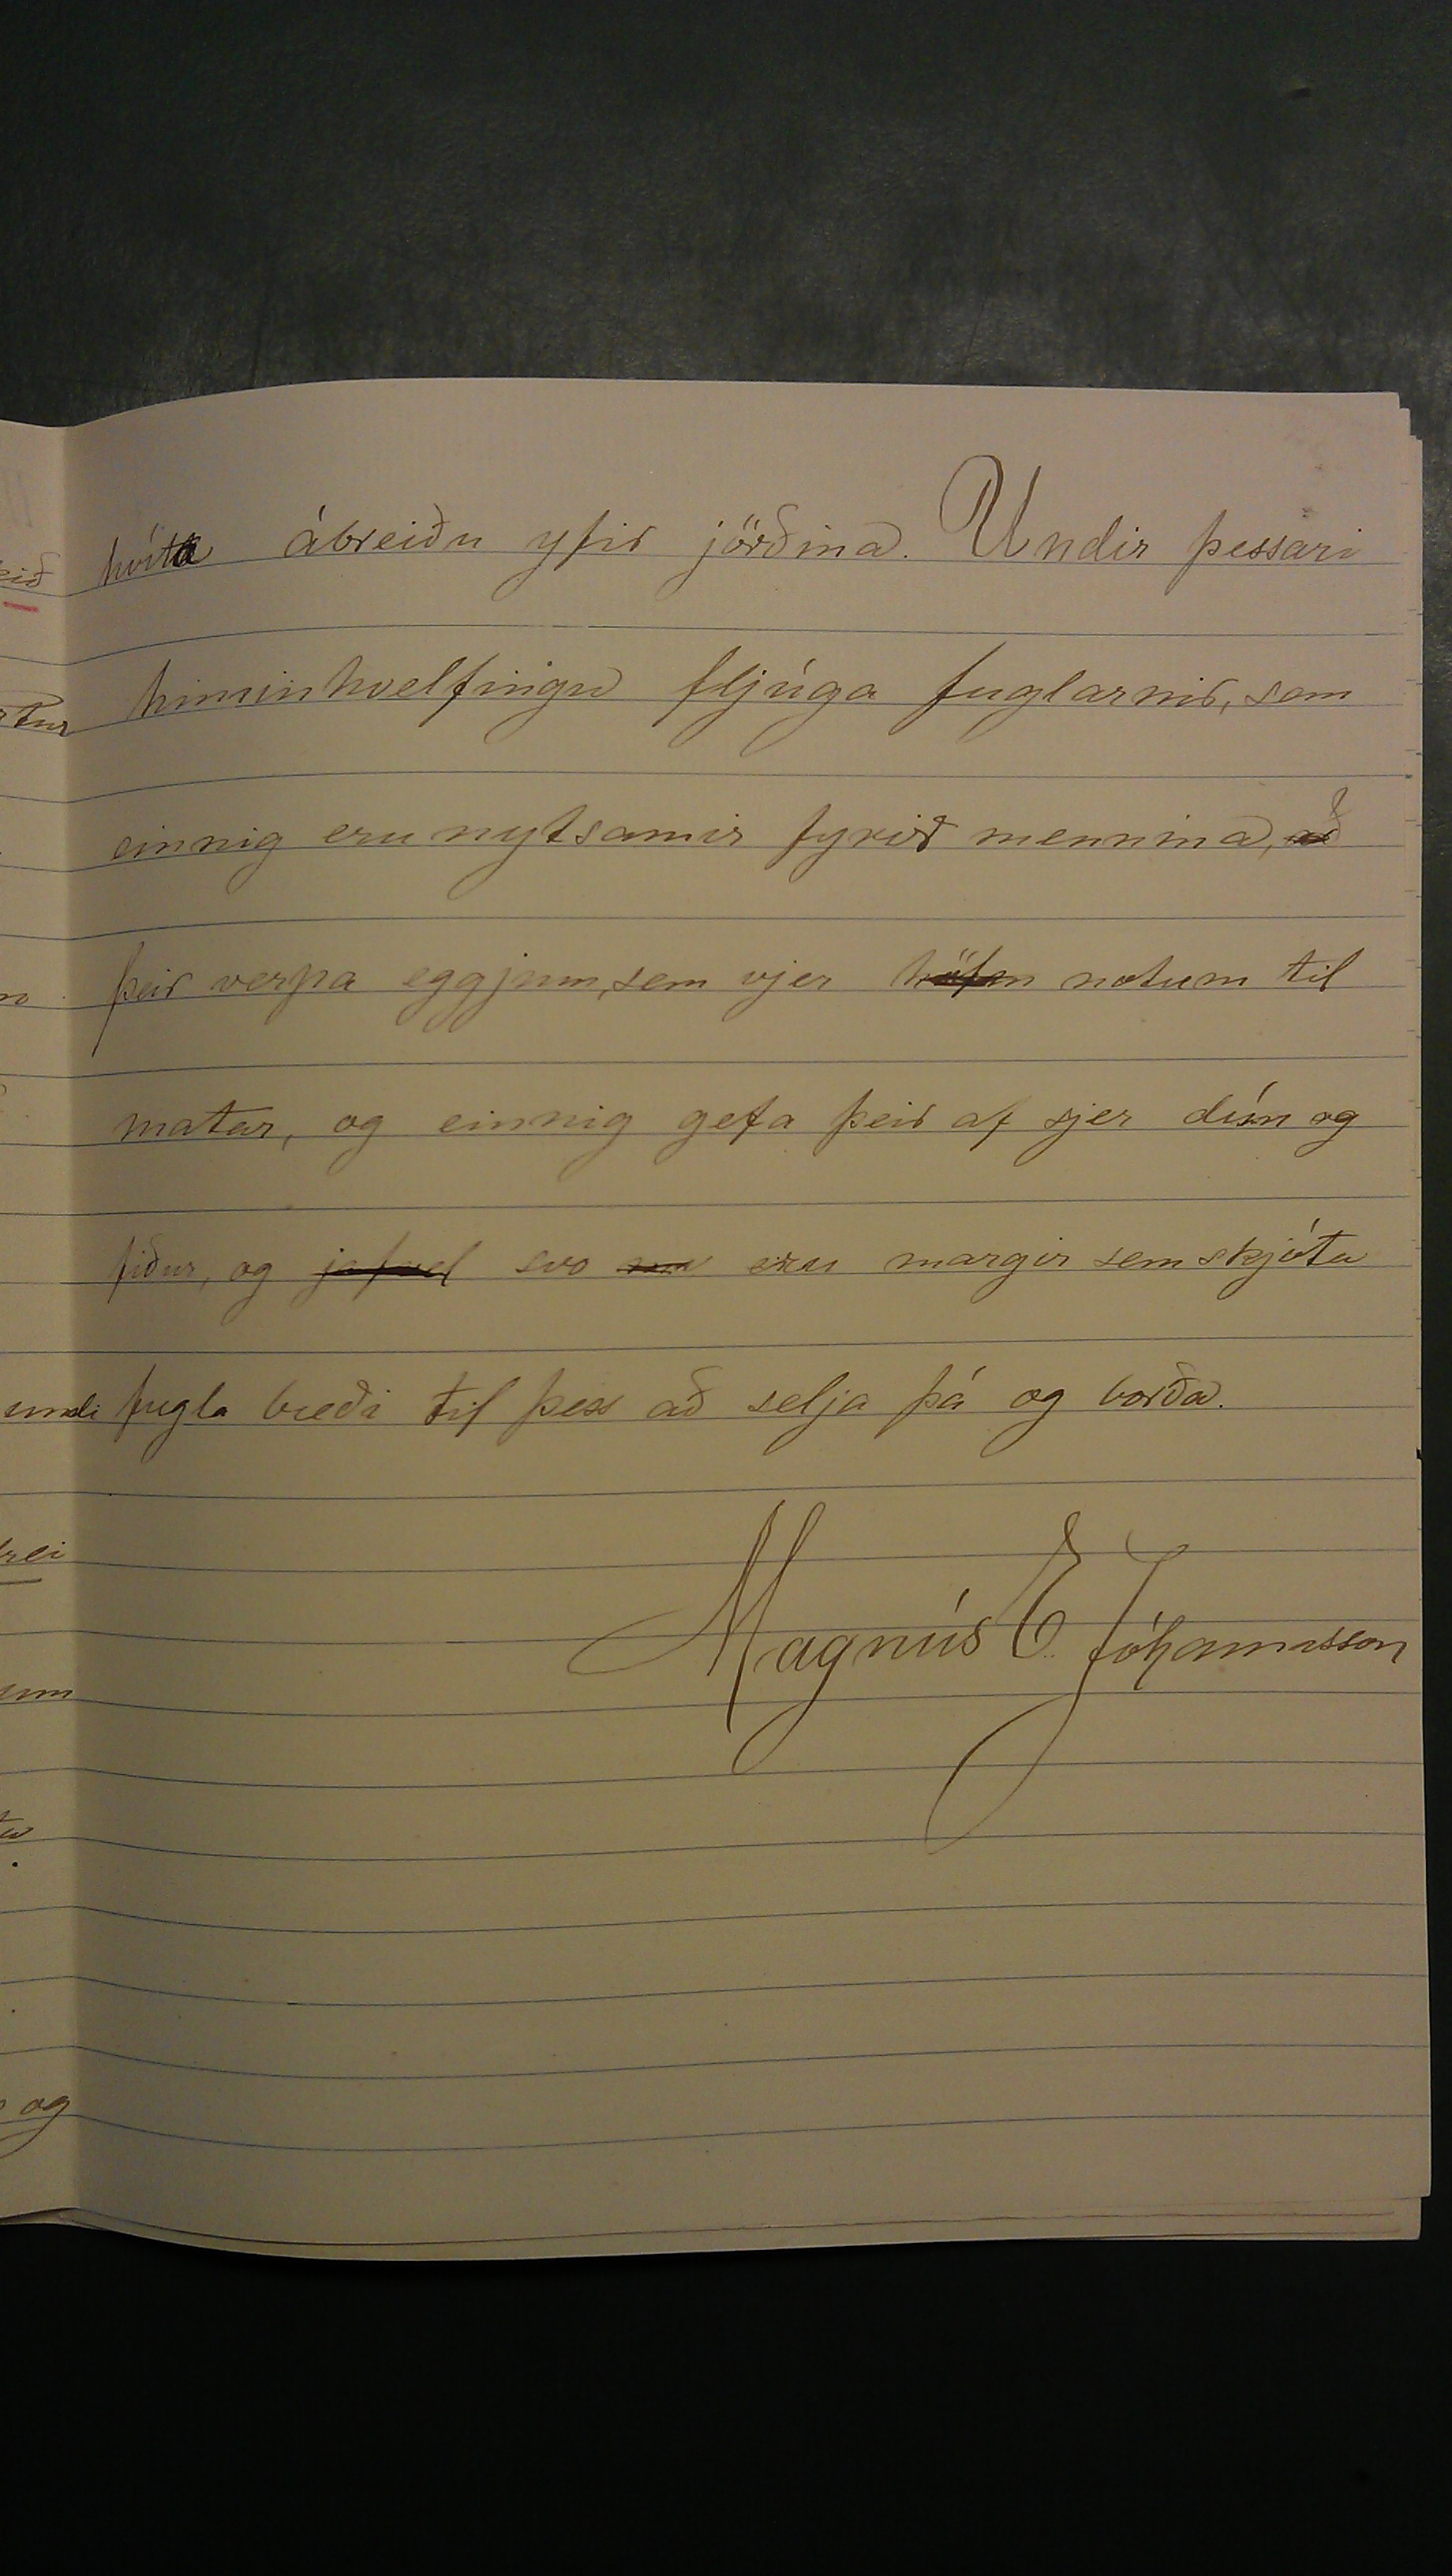 hvíta ábreiðu yfir jörðina. Undir þessari
himinhvelfingu fljúga fuglarnir, sem
einnig eru nytsamir fyrir mennina, að
þeir verpa eggjum, sem vjer höfum notum til
matar, og einnig gefa þeir af sjer dún og
fiður, og jafvel svo eru margir sem skjóta
fugla bæði til þess að selja þá og borða.
Magnús E. Jóhannsson